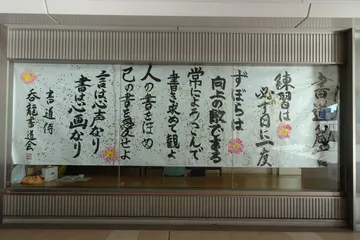 書道
練習は
必ず日に一度
ずぼらは
向上の敵である
常によろこんで
書き求めて観よ
人の書をほめ
己の書を愛せよ
言は心声なり
書は心画なり
書道侍
呑龍書道会